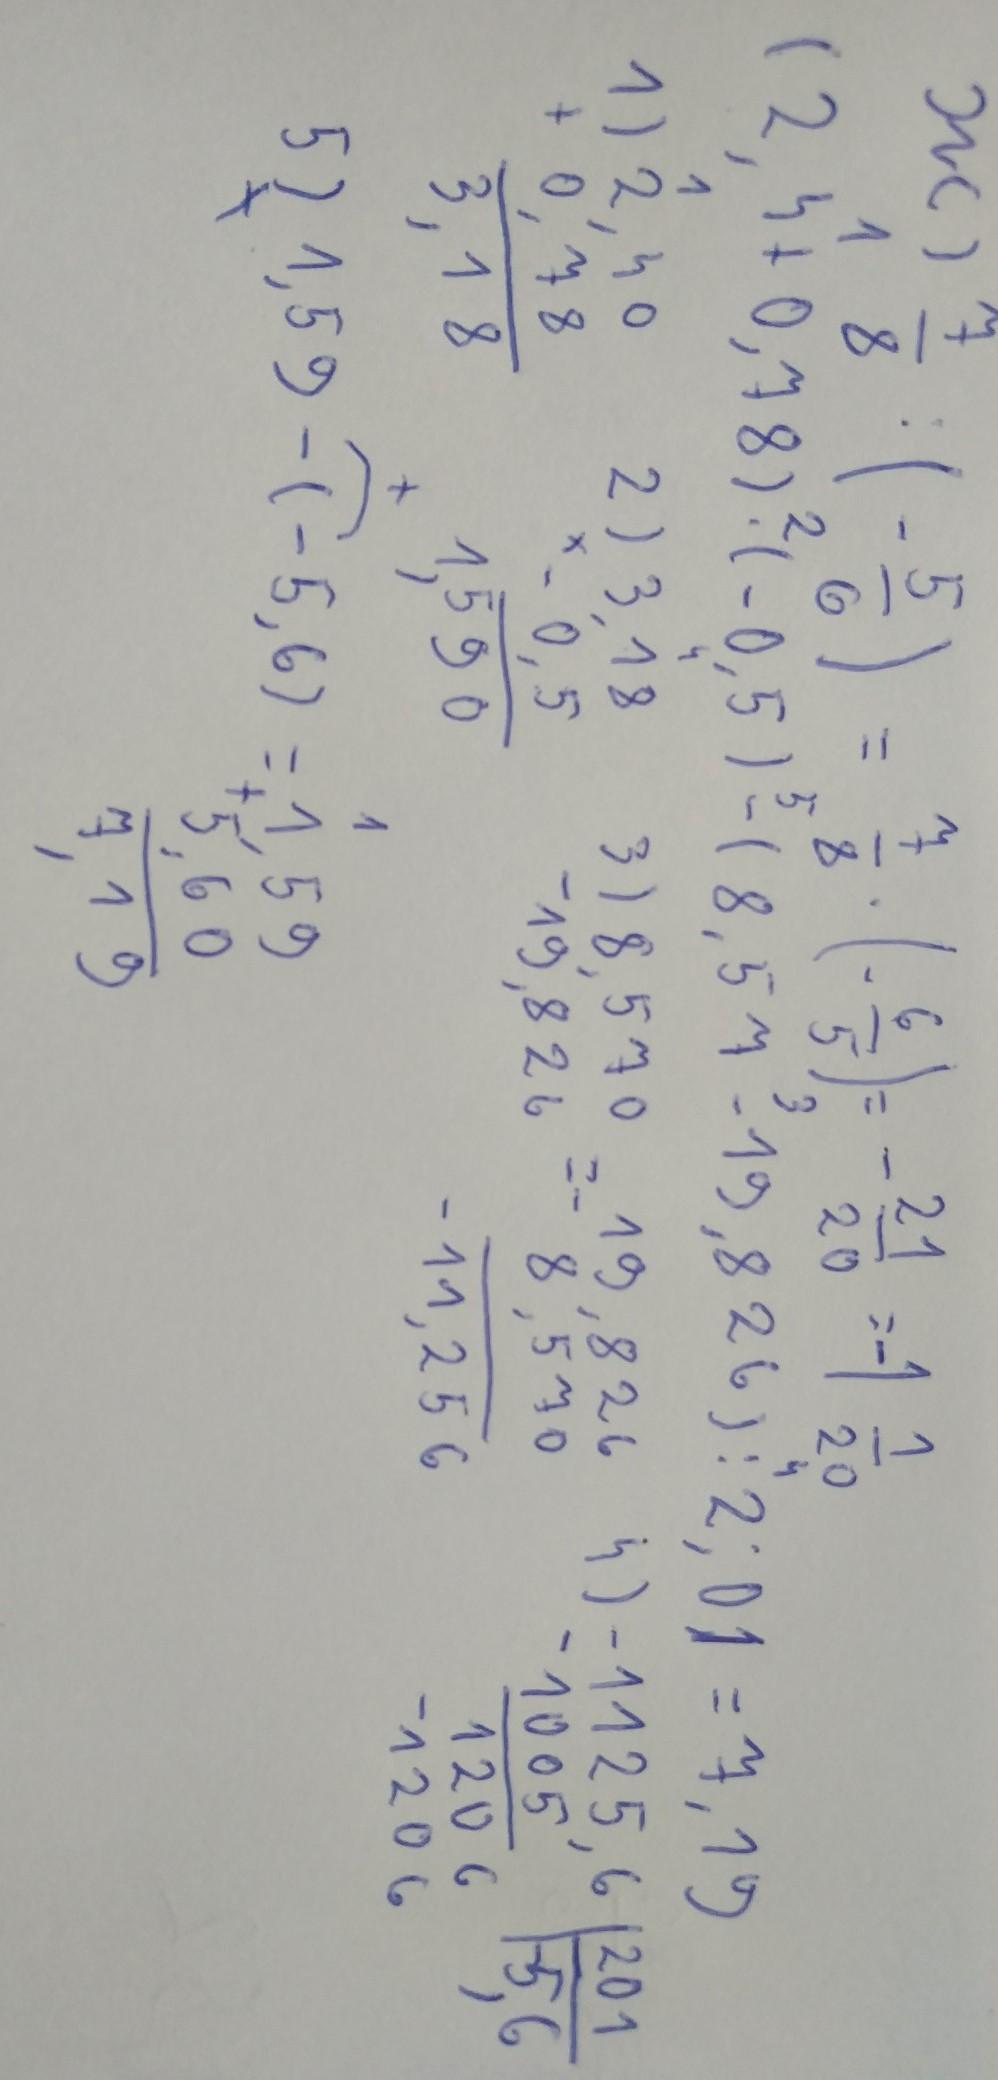 ж) 7/8 : (-5/6) = 7/8 · (-6/5) = -21/20 = -1 1/20
1 2 5 3 4
(2,4+0,78)·(-0,5)-(8,57-19,826):2,01=7,19
1) 2,40 + 0,78 = 3,18
2) 3,18 × -0,5 = 1,590
3) 8,570 -19,826 =- 19,826 8,570 -11,256
4) -1125,6 |201 -1005 |-5,6 1206 -1206
5) 1,59-(-5,6)= 1,59 + 5,60 7,19